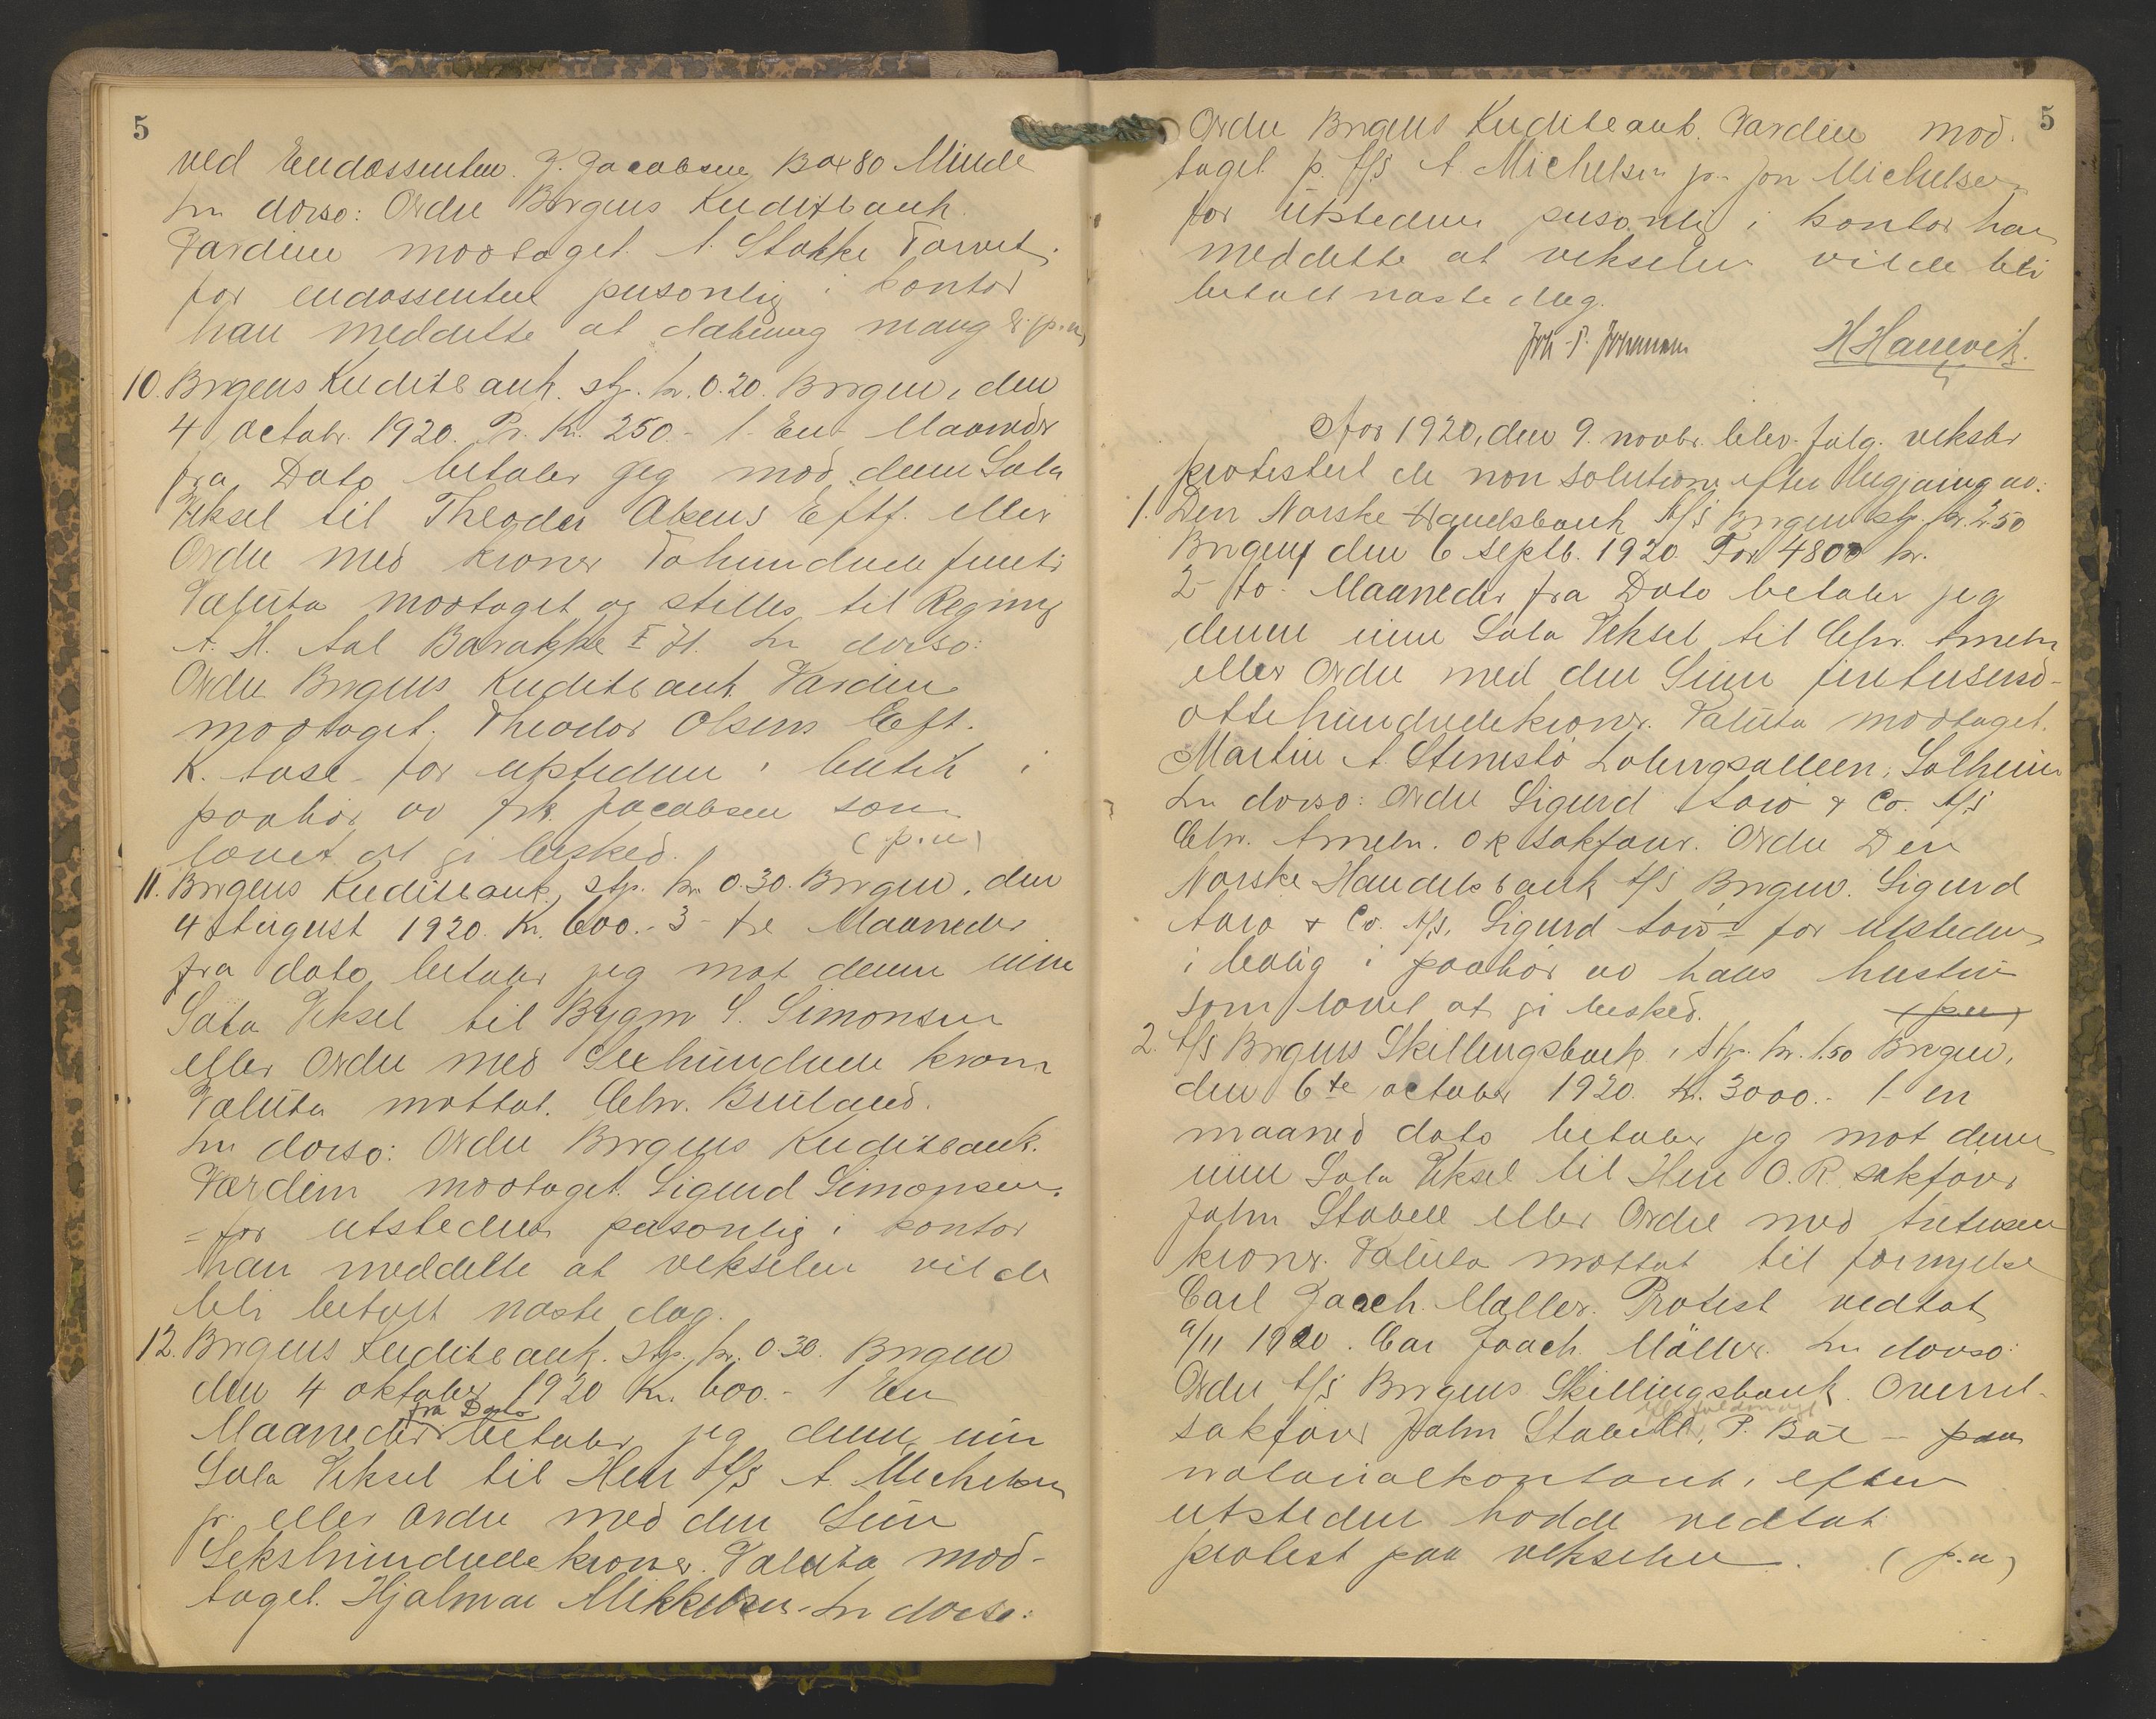 5
ved Endossenten J. Jacobsen Box 80 Minde
In dorso: Ordre Bergens Kreditbank
Værdien modtaget. A. Stokke Torvet.
for endossenten personlig i kontor
han meddelte at dækning mangl. (p.u)
10. Bergens Kreditbank. stp. kr. 0.20. Bergen, den
4 octobr. 1920. Pr. Kr. 250.- 1- En- Maaneder
fra Dato betaler jeg mod denne Sola
Veksel til Theodor Olsens Eftf. eller
Ordre med kroner Tohundrede femti
Valuta modtaget og stilles til Regning
A. H. Aal Barakke I 71. In dorso:
Ordre Bergens Kreditbank Værdien
modtaget. Theodor Olsens Eft.
K. Aase - for utstederen i butik i
paahør av frk. Jacobsen som
lovet at gi besked. (p.u)
11. Bergens Kreditbank, stp. kr. 0.30. Bergen, den
4 August 1920. Kr. 600.- 3- tre Maaneder
fra dato betaler jeg mot denne min
Sola Veksel til Bygm S. Simonsen
eller Ordre med Sexhundrede kroner
Valuta mottat. Chr. Bruland.
In dorso: Ordre Bergens Kreditbank.
Værdien modtaget. Sigurd Simonsen.
= for utstederen personlig i kontor
han meddelte at vekselen vilde
bli betalt næste dag.
12. Bergens Kreditbank. stp. kr. 0.30. Bergen
den 4 oktober 1920 Kr. 600.- 1 En
fra Dato
Maaneder betaler jeg denne min
Sola Veksel til Herr A/S A. Michelsen
jr. eller Ordre med den Sum
Sekshundrede kroner. Valuta mod-
taget. Hjalmar Mikkelsen. In dorso:
5
Ordre Bergens Kreditbank. Værdien mod.
taget p. A/S A. Michelsen jr. Jon Michelsen
for utstederen personlig i kontor han
meddelte at vekselen vilde bli
betalt næste dag.
Joh. P. Johannesen H Hanevik.
Aar 1920, den 9. novbr. blev følg. veksler
protestert de non solutione efter begjæring av:
1. Den Norske Handelsbank A/S Bergen stp. kr. 2.50
Bergen den 6 septb. 1920. For 4800 kr.
2- to- Maaneder fra Dato betaler jeg
denne min Sola Veksel til Chr. Ameln
eller Ordre med den Sum firetusend-
ottehundredekroner. Valuta modtaget.
Martin A. Stenestø Løbergsalleen, Solheim
In dorso: Ordre Sigurd Aarø & Co. A/S
Chr. Ameln. OR sakfører. Ordre Den
Norske Handelsbank A/S Bergen. Sigurd
Aarø & Co. A/S. Sigurd Aarø = for utstederen
i bolig i paahør av hans hustru
som lovet at gi besked. (p.u)
2. A/S Bergens Skillingsbank, stp. kr. 1.50 Bergen,
den 6te october 1920. Kr. 3000.- 1- en
maaned dato betaler jeg mot denne
min Sola Veksel til Herr O.R. sakfører
John Stabell eller Ordre med tretusen
kroner. Valuta mottat til fornyelse
Carl Joach. Møller. Protest vedtat
9/11 1920. Carl Joach. Møller. In dorso:
Ordre A/S Bergens Skillingsbank. Overret-
efter fuldmagt
sakfører John Stabell, P. Bøe - paa
notarialkontoret, efter
utstederen hadde vedtat
protest paa vekselen. (p.u)